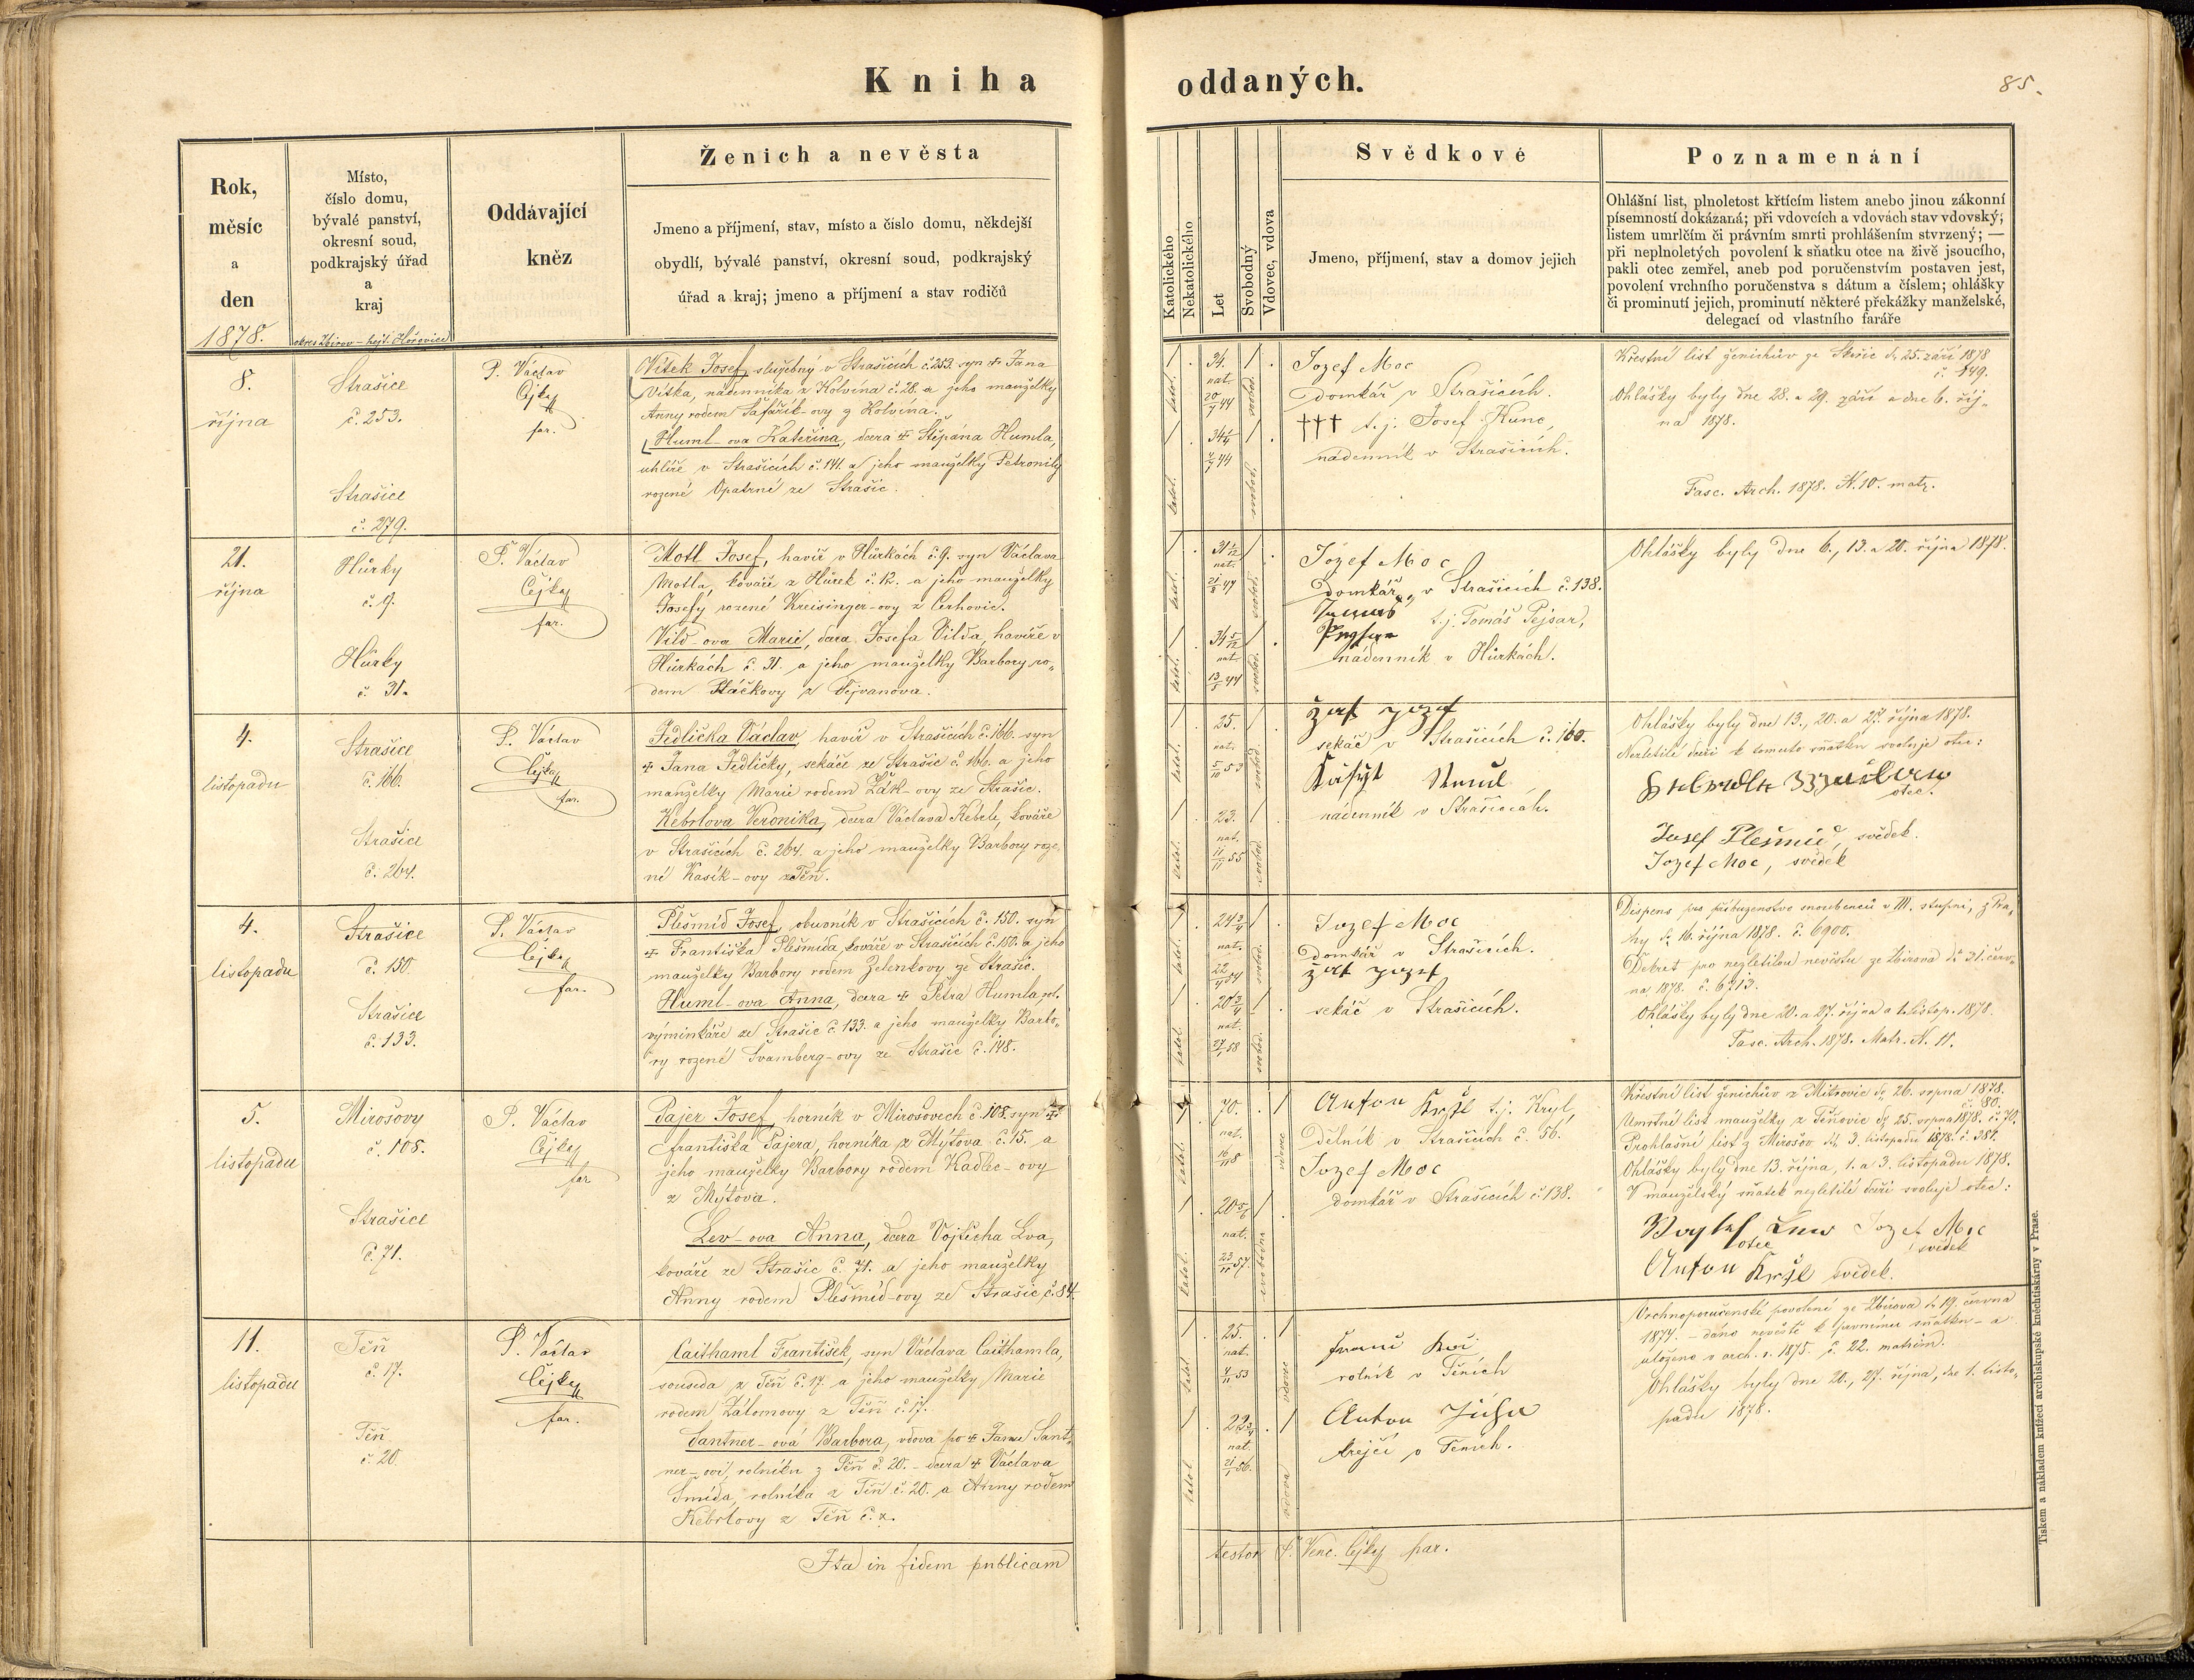 Kniha oddaných.
85.
Rok,
měsíc
a
den
1878.
Místo,
číslo domu,
bývalé panství,
okresní soud,
podkrajský úřad
a
kraj
okres Zbirov – hejt. Hořovice
Oddávající
kněz
Ženich a nevěsta
Jmeno a příjmení, stav, místo a číslo domu, někdejší
obydlí, bývalé panství, okresní soud, podkrajský
úřad a kraj; jmeno a příjmení a stav rodičů
Katolického
Nekatolického
Let
Svobodný
Vdovec, vdova
Svědkové
Jmeno, příjmení, stav a domov jejich
Poznamenání
Ohlášní list, plnoletost křticím listem anebo jinou zákonní
písemností dokázaná; při vdovcích a vdovách stav vdovský;
listem umrlčím či právním smrti prohlášením stvrzený; —
při neplnoletých povolení k sňatku otce na živě jsoucího,
pakli otec zemřel, aneb pod poručenstvím postaven jest,
povolení vrchního poručenstva s dátum a číslem; ohlášky
či prominutí jejich, prominutí některé překážky manželské,
delegací od vlastního faráře
8.
října
Strašice
č. 253.
Strašice
č. 279.
P. Václav
Cejka
far.
Vítek Josef, služebný v Strašicích č. 253. syn + Jana
Vítka, nádenníka z Kolvína č. 28. a jeho manželky
Anny rodem Šafařík-ovy z Kolvína.
Huml-ova Kateřina, dcera + Štěpána Humla,
uhlíře v Strašicích č. 141. a jeho manželky Petronily
rozené Opatrné ze Strašic.
katol.
34.
nat.
20/7 44
svobod.
katol.
34 1/4
4/7 44
svobod.
Jozef Moc
domkář v Strašicích.
††† t. j. Josef Kunc,
nádenník v Strašicích.
Křestní list ženichův ze Skořic dt. 25. září 1878
č. 149.
Ohlášky byly dne 28. a 29. září a dne 6. říj-
na 1878.
Fasc. Arch. 1878. N. 10. matr.
21.
října
Hůrky
č. 9.
Hůrky
č. 31.
P. Václav
Cejka
far.
Motl Josef, havíř v Hůrkách č. 9. syn Václava
Motla, kováře z Hůrek č. 12. a jeho manželky
Josefy rozené Kreisinger-ovy z Cerhovic.
Vild-ova Marie, dcera Josefa Vilda, havíře v
Hůrkách č. 31. a jeho manželky Barbory ro-
dem Ptáčkovy z Tejvanova.
katol.
nat.
svobod.
katol.
34 5/12
nat.
13/5 44
svobod.
Jozef Moc
domkář v Strašicích č. 138.
t. j. Tomáš Pejsar,
nádenník v Hůrkách.
Ohlášky byly dne 6., 13. a 20. října 1878.
4.
listopadu
Strašice
č. 166.
Strašice
č. 264.
P. Václav
Cejka
far.
Jedlička Václav, havíř v Strašicích č. 166. syn
+ Jana Jedličky, sekáče ze Strašic č. 166. a jeho
manželky Marie rodem Žák-ovy ze Strašic.
Kebrlova Veronika, dcera Václava Kebrle, kováře
v Strašicích č. 264. a jeho manželky Barbory roze-
né Kasík-ovy z Těň.
katol.
25.
nat.
5/10 53
svobod.
katol.
23.
nat.
11/11 55
svobod.
sekáč v Strašicích č. 160.
nádenník v Strašicích.
Ohlášky byly dne 13., 20. a 27. října 1878.
Nezletilé dceři k tomuto sňatku svoluje otec:
otec.
Josef Plešmíd, svědek.
Jozef Moc, svědek
4.
listopadu
Strašice
č. 150.
Strašice
č. 133.
P. Václav
Cejka
far.
Plešmíd Josef, obuvník v Strašicích č. 150. syn
+ Františka Plešmída, kováře v Strašicích č. 150. a jeho
manželky Barbory rodem Zelenkovy ze Strašic.
Huml-ova Anna, dcera + Petra Humla
výminkáře ze Strašic č. 133. a jeho manželky Barbo-
ry rozené Švamberg-ovy ze Strašic č. 148.
katol.
24 3/4
nat.
svobod.
katol.
20 3/4
nat.
27/1 58
svobod.
Jozef Moc
domkář v Strašicích.
sekáč v Strašicích.
Dispens pro příbuzenstvo snoubenců v III. stupni, z Pra-
hy dt. 16. října 1878. č. 6900.
Dekret pro nezletilou nevěstu ze Zbirova dt. 21. červ-
na 1878. č. 6213.
Ohlášky byly dne 20. a 27. října a 1. listop. 1878.
Fasc. Arch. 1878. Matr. N. 11.
5.
listopadu
Mirošovy
č. 108.
Strašice
č. 71.
P. Václav
Cejka
far
Pajer Josef, horník v Mirošovech č. 108. syn +
Františka Pajera, horníka z Mýtova č. 15. a
jeho manželky Barbory rodem Kadlec-ovy
z Mýtova.
Lev-ova Anna, dcera Vojtěcha Lva,
kováře ze Strašic č. 71. a jeho manželky
Anny rodem Plešmíd-ovy ze Strašic č. 84.
katol.
nat.
vdovec
katol.
20 5/6
nat.
23/11 57.
svobodna
Anton Krýl t. j. Kryl,
dělník v Strašicích č. 56.
Jozef Moc
domkář v Strašicích č. 138.
Křestní list ženichův z Mitrovic dt. 26. srpna 1878.
č. 80.
Umrtní list manželky z Těňovic dt. 25. srpna 1878. č. 70.
Prohlašní list z Mirošov dt. 3. listopadu 1878. č. 381.
Ohlášky byly dne 13. října, 1. a 3. listopadu 1878.
V manželský sňatek nezletilé dceři svoluje otec:
otec
Jozef Moc
svědek
Anton Krýl svědek.
11.
listopadu
Těň
č. 17.
Těň
č. 20.
P. Václav
Cejka
far.
Caithaml František, syn Václava Caithamla,
souseda z Těň č. 17. a jeho manželky Marie
rodem Zálomovy z Těň č. 17.
Santner-ová Barbora, vdova po + Janu Sant-
ner-ovi, rolníku z Těň č. 20. – dcera + Václava
Šmída, rolníka z Těň č. 20. a Anny rodem
Kebrlovy z Těň č. 2.
katol
25.
nat.
4/11 53
vdovec
katol
22 3/4
nat.
21/1 56.
vdova
rolník v Těních
Anton
krejčí v Těních.
Vrchnoporučenské povolení ze Zbirova dt. 19. června
1874. – dáno nevěstě k prvnímu sňatku – a
uloženo v arch. r. 1875. č. 22. matrim.
Ohlášky byly dne 20., 27. října, dne 1. listo-
padu 1878.
Ita in fidem publicam
testor P. Venc. Cejka par.
Tiskem a nákladem knížecí arcibiskupské knihtiskárny v Praze.